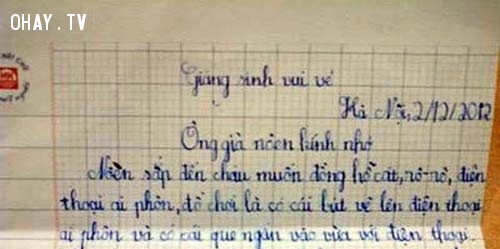 OHAY.TV
Giáng sinh vui vẻ
Hà Nội, 2/12/2012
Ông già nôen kính nhớ
Nôen sắp đến cháu muốn đồng hồ cát, rô-rô, điện
thoại ai phôn, đồ chơi là có cái bút vẽ lên điện thoại
ai phôn và có cái que ngắn vào vừa với điện thoại...